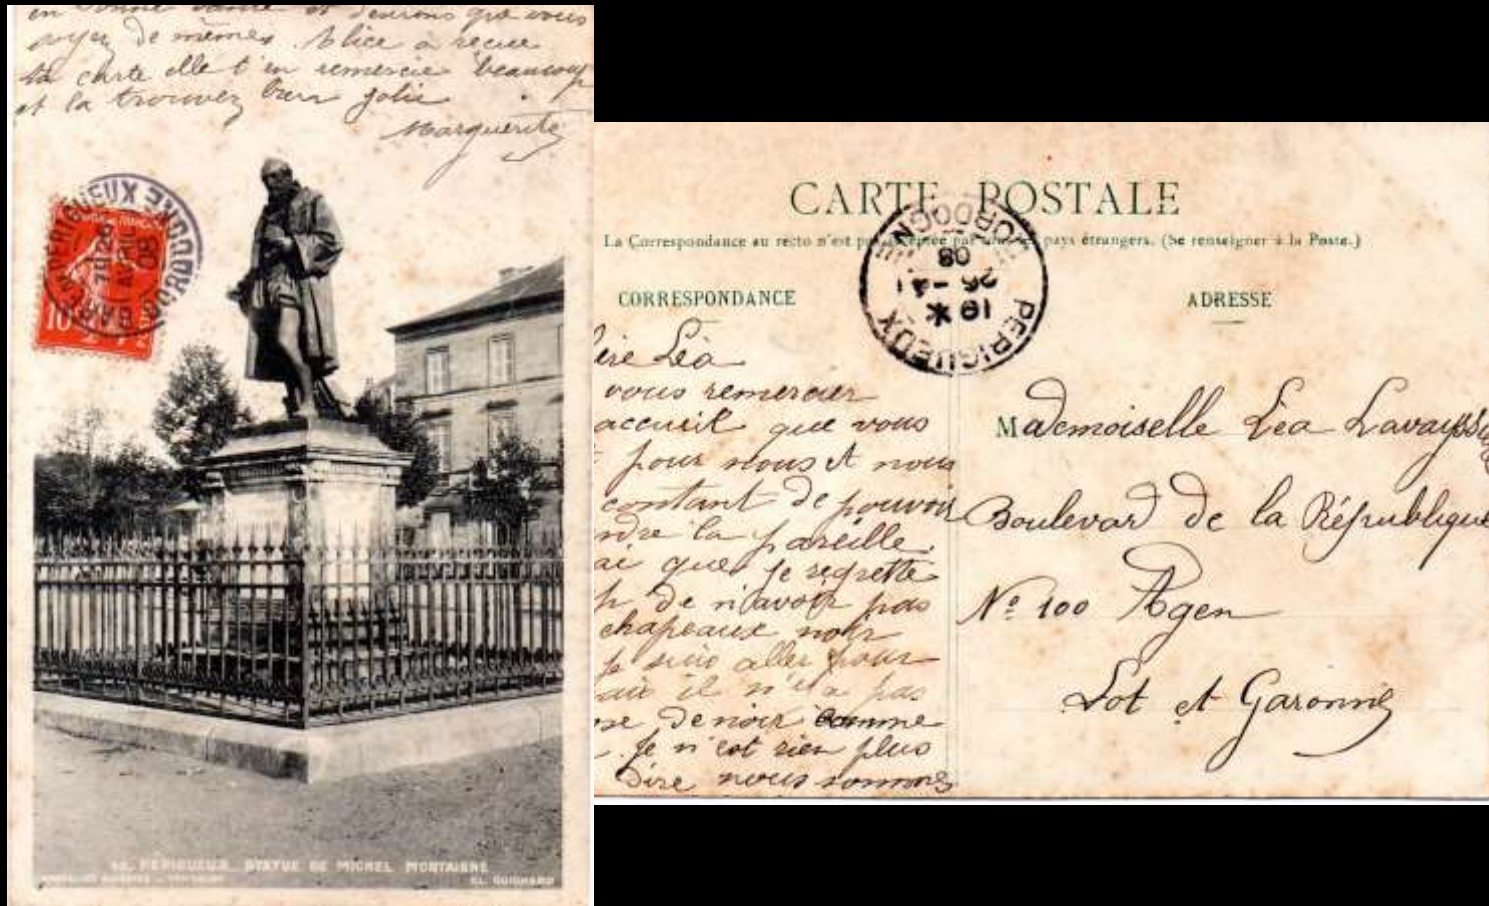 en bonne santé et desirons que vous
soyez de mêmes. Alice à reçue
ta carte elle t'en remercie beaucoup
et la trouvez bien jolie
Marguerite
GARE DE PERIGUEUX DORDOGNE
19 26
AVRIL
08
10
PÉRIGUEUX _ STATUE DE MICHEL MONTAIGNE
CL. GUIGNARD
CARTE POSTALE
La Correspondance au recto n'est pas acceptée par tous les pays étrangers. (Se renseigner à la Poste.)
PERIGUEUX DORDOGNE
19 *
26 - 4
08
CORRESPONDANCE
Léa
vous remercier
accueil que vous
pour nous et nous
contant de pouvoir
la pareille.
que je regrette
de n'avoir pas
chapeaux noir
je suis aller pour
il n'y a pas
de noir comme
Je n'est rien plus
dire nous sommes
ADRESSE
Mademoiselle Léa Lavayssière
Boulevard de la République
Nº 100 Agen
Lot et Garonne